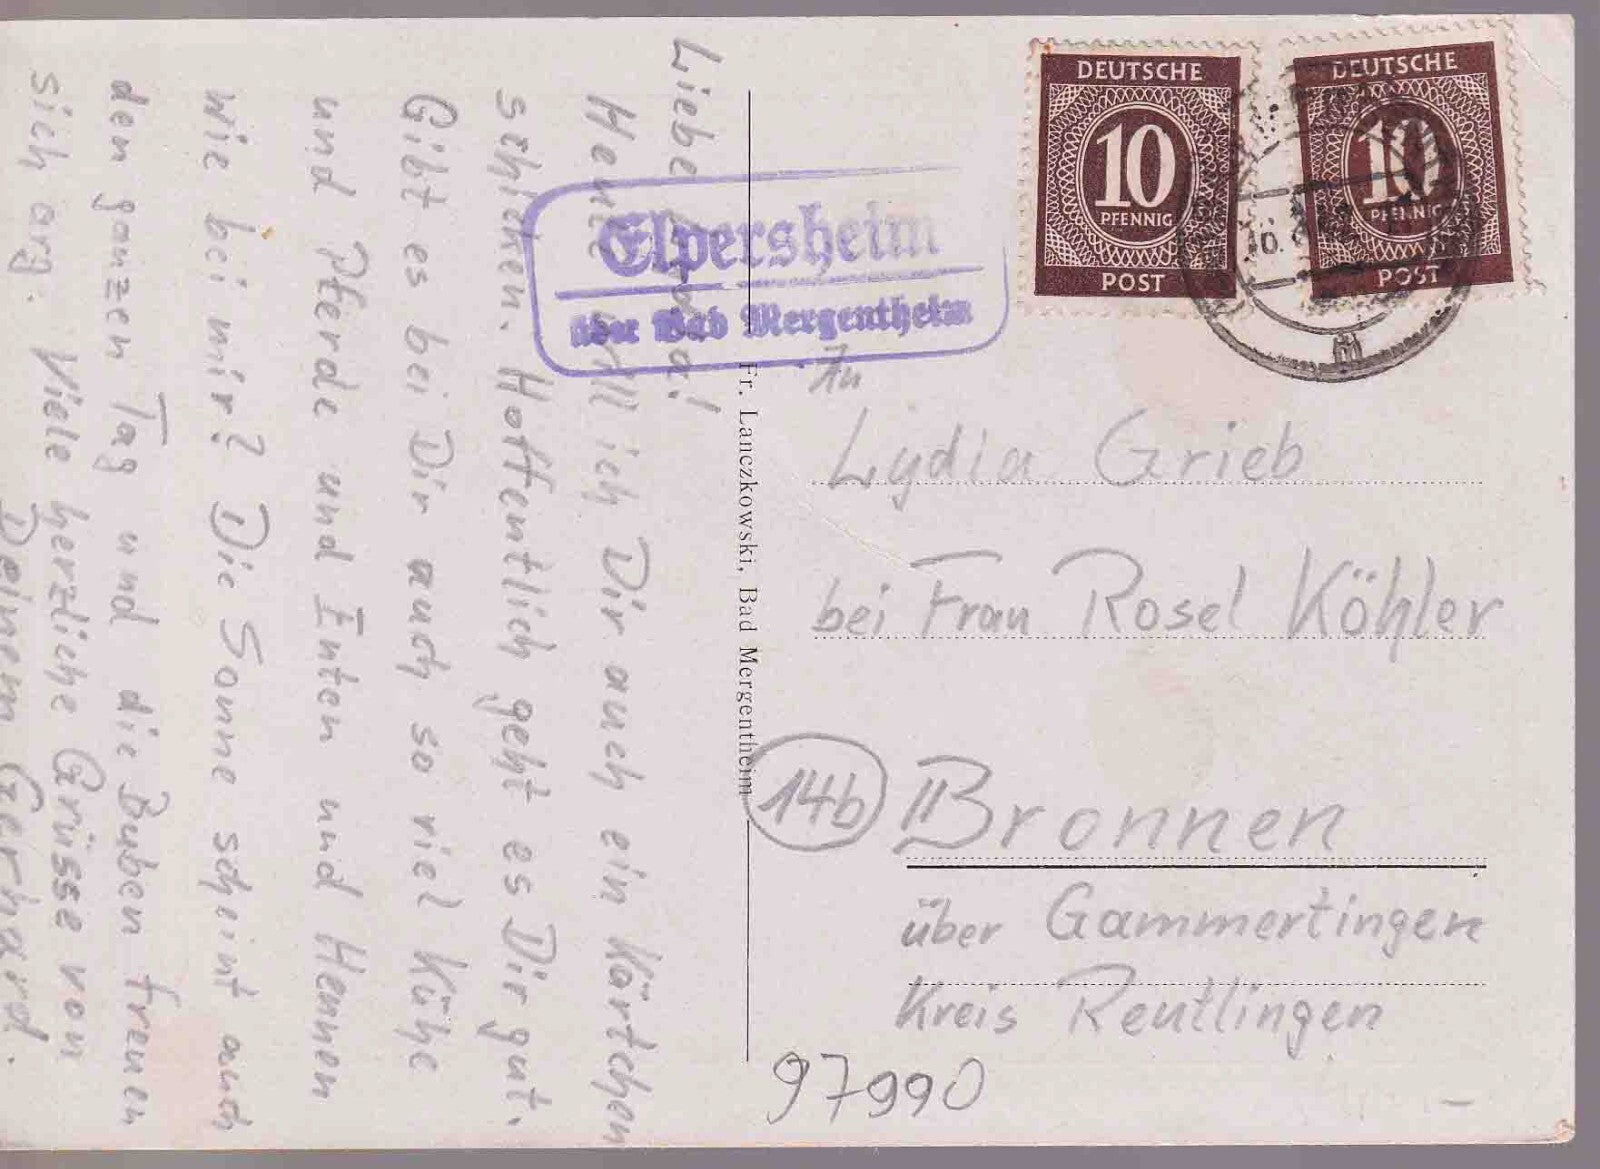 Liebe Lydia!
Heute will ich Dir auch ein Kärtchen
schicken. Hoffentlich geht es Dir gut.
Gibt es bei Dir auch so viel Kühe
und Pferde und Enten und Hennen
wie bei mir? Die Sonne scheint auch
den ganzen Tag und die Buben freuen
sich arg. Viele herzliche Grüsse von
Deinem Gerhard.
Elpersheim
über Bad Mergentheim
Fr. Lanczkowski, Bad Mergentheim
DEUTSCHE
10
PFENNIG
POST
DEUTSCHE
10
PFENNIG
POST
An
Lydia Grieb
bei Frau Rosel Köhler
14b Bronnen
über Gammertingen
Kreis Reutlingen
97990